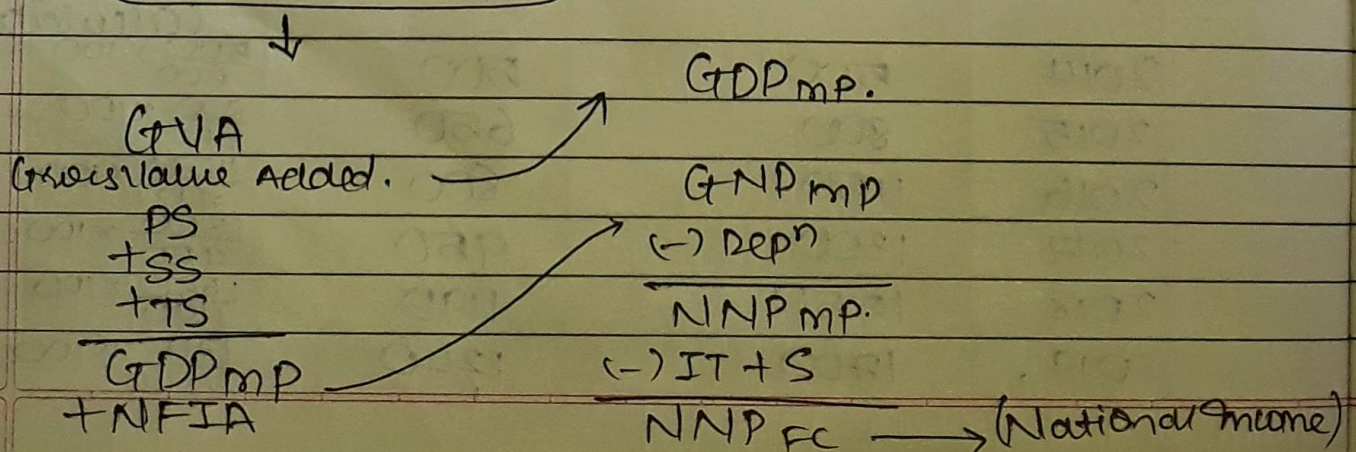 GVA
Gross Value Added.
PS
+SS
+TS
GDP MP
+NFIA
GDP MP.
GNP MP
(-) Depn
NNP MP.
(-) IT + S
NNP FC → (National Income)